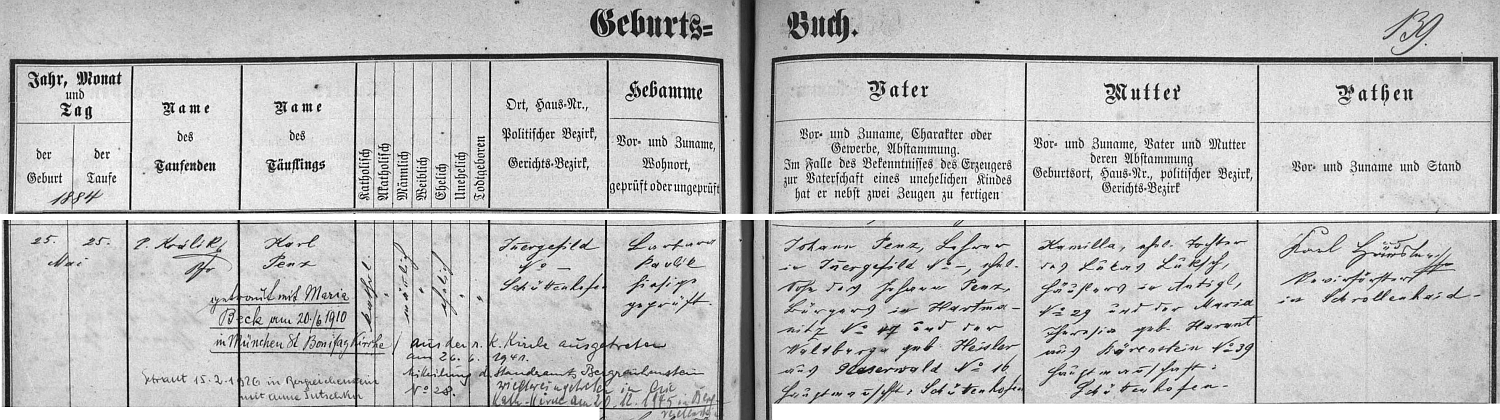 Geburts=
Buch.
139.
Jahr, Monat
und
Tag
der
Geburt
der
Taufe
1884
Name
des
Taufenden
Name
des
Täuflings
Katholisch
Akatholisch
Männlich
Weiblich
Ehelich
Unehelich
Todtgeboren
Ort, Haus-Nr.,
Politischer Bezirk,
Gerichts-Bezirk,
Hebamme
Vor- und Zuname,
Wohnort,
geprüft oder ungeprüft
Vater
Vor- und Zuname, Charakter oder
Gewerbe, Abstammung.
Im Falle des Bekenntnisses des Erzeugers
zur Vaterschaft eines unehelichen Kindes
hat er nebst zwei Zeugen zu fertigen
Mutter
Vor- und Zuname, Vater und Mutter
deren Abstammung
Geburtsort, Haus-Nr., politischer Bezirk,
Gerichts-Bezirk
Pathen
Vor- und Zuname und Stand
25. 25.
Mai
P. Králik
Karl
Penz
kathol.
männlich
ehelich
Innergefild
No –
Schüttenhofen
Barbara
Pavlik
geprüft.
Johann Penz, Lehrer
in Innergefild No –, ehel.
Sohn des Johann Penz,
Bürgers in Hartma-
nitz No 47 und der
Walburga geb. Heisler
aus Haserwald No 16
Hauptmannschft: Schüttenhofen
Kamilla, ehl. Tochter
des Lukas Luksch,
Häuslers in Antigl,
No 29 und der Maria
Theresia geb. Harant
aus Bärenstein No 39
Hauptmannschaft:
Schüttenhofen.
Karl
Revierförster
in
getraut mit Maria
Beck am 20./6. 1910
in München St. Bonifaz Kirche
Getraut 15.2.1926 in Bergreichenstein
mit Anna
aus der r. k. Kirche ausgetreten
am 26. 6. 1941.
Mitteilung d. Standesamt, Bergreichenstein
No 28.
wiedereingetreten in die
Kath. Kirche am 20.12.1945 in Berg-